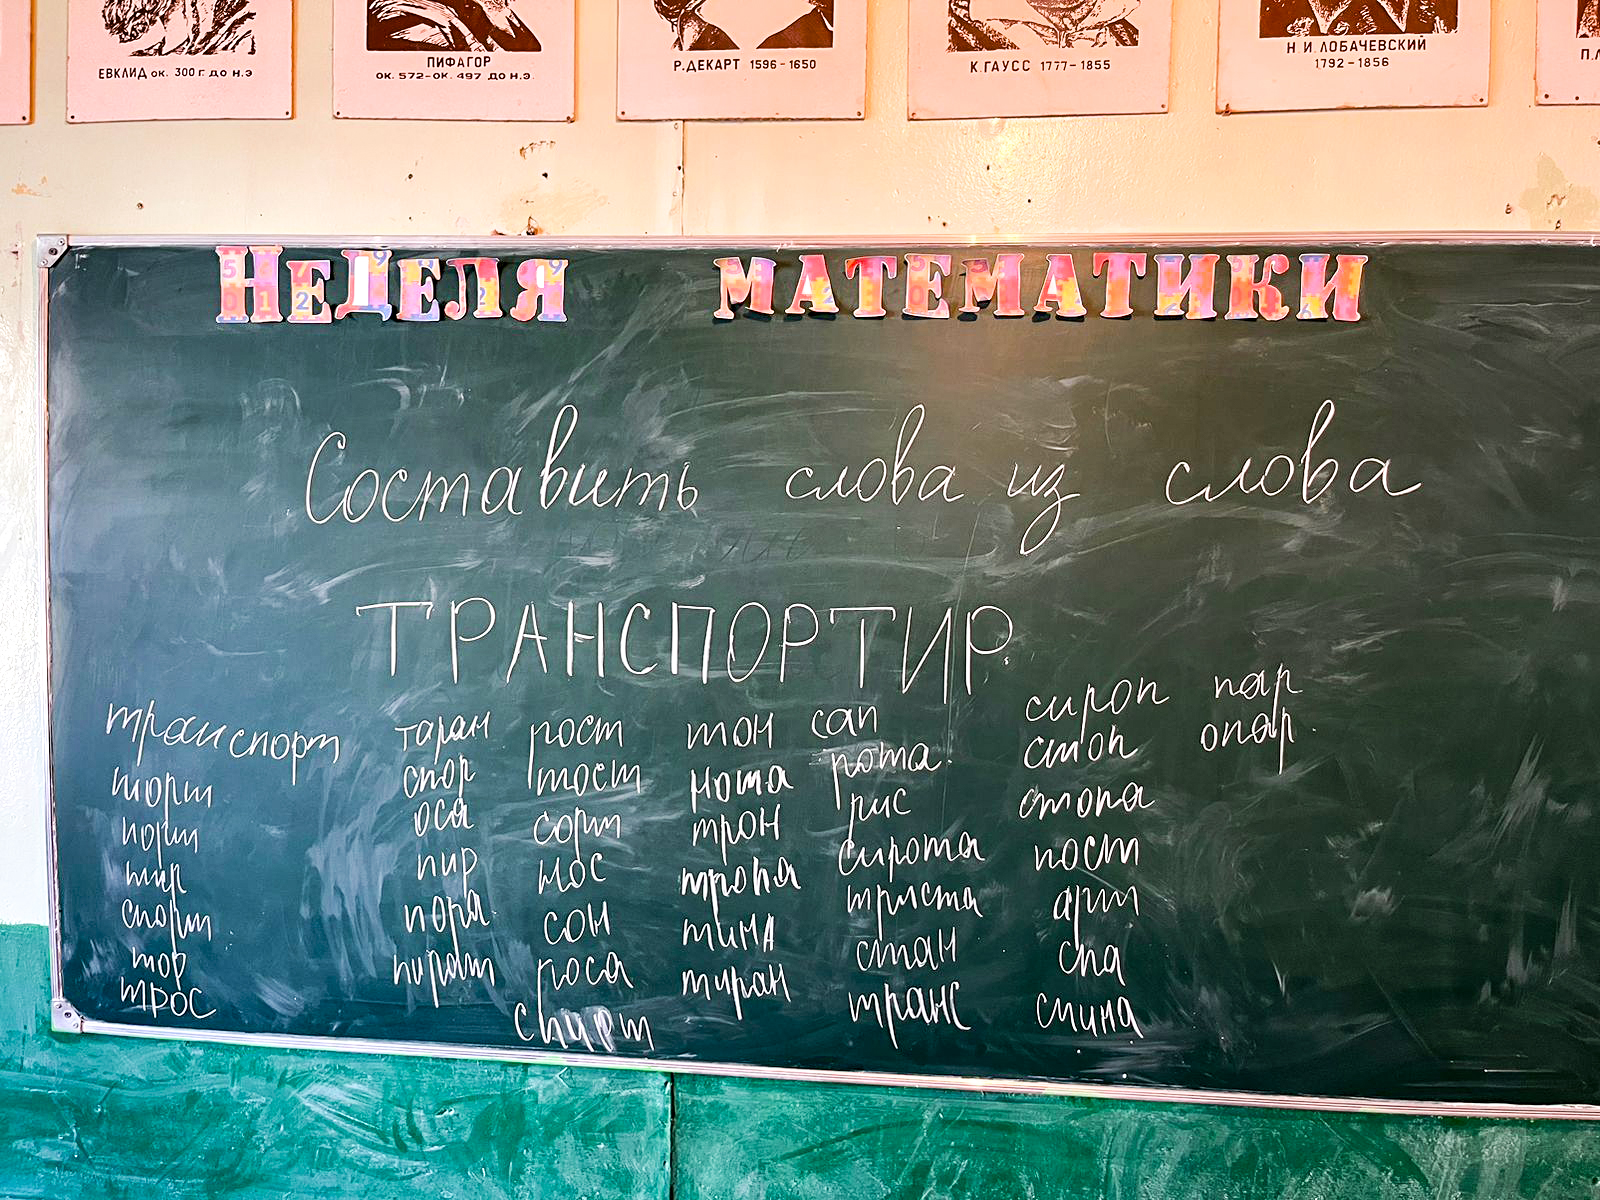 ЕВКЛИД ОК. 300 Г. ДО Н.Э
ПИФАГОР
ОК. 572-ОК. 497 ДО Н.Э.
Р. ДЕКАРТ 1596-1650
К. ГАУСС 1777-1855
Н. И. ЛОБАЧЕВСКИЙ
1792-1856
НЕДЕЛЯ МАТЕМАТИКИ
Составить слова из слова
ТРАНСПОРТИР
транспорт
торт
порт
тир
спорт
тор
трос
таран
спор
оса
пир
пора
пират
рост
тост
сорт
нос
сон
роса
спирт
тон
нота
трон
тропа
тина
тиран
сап
рота
рис
сирота
триста
стан
транс
сироп
стоп
стопа
пост
арт
спа
спина
пар
опар